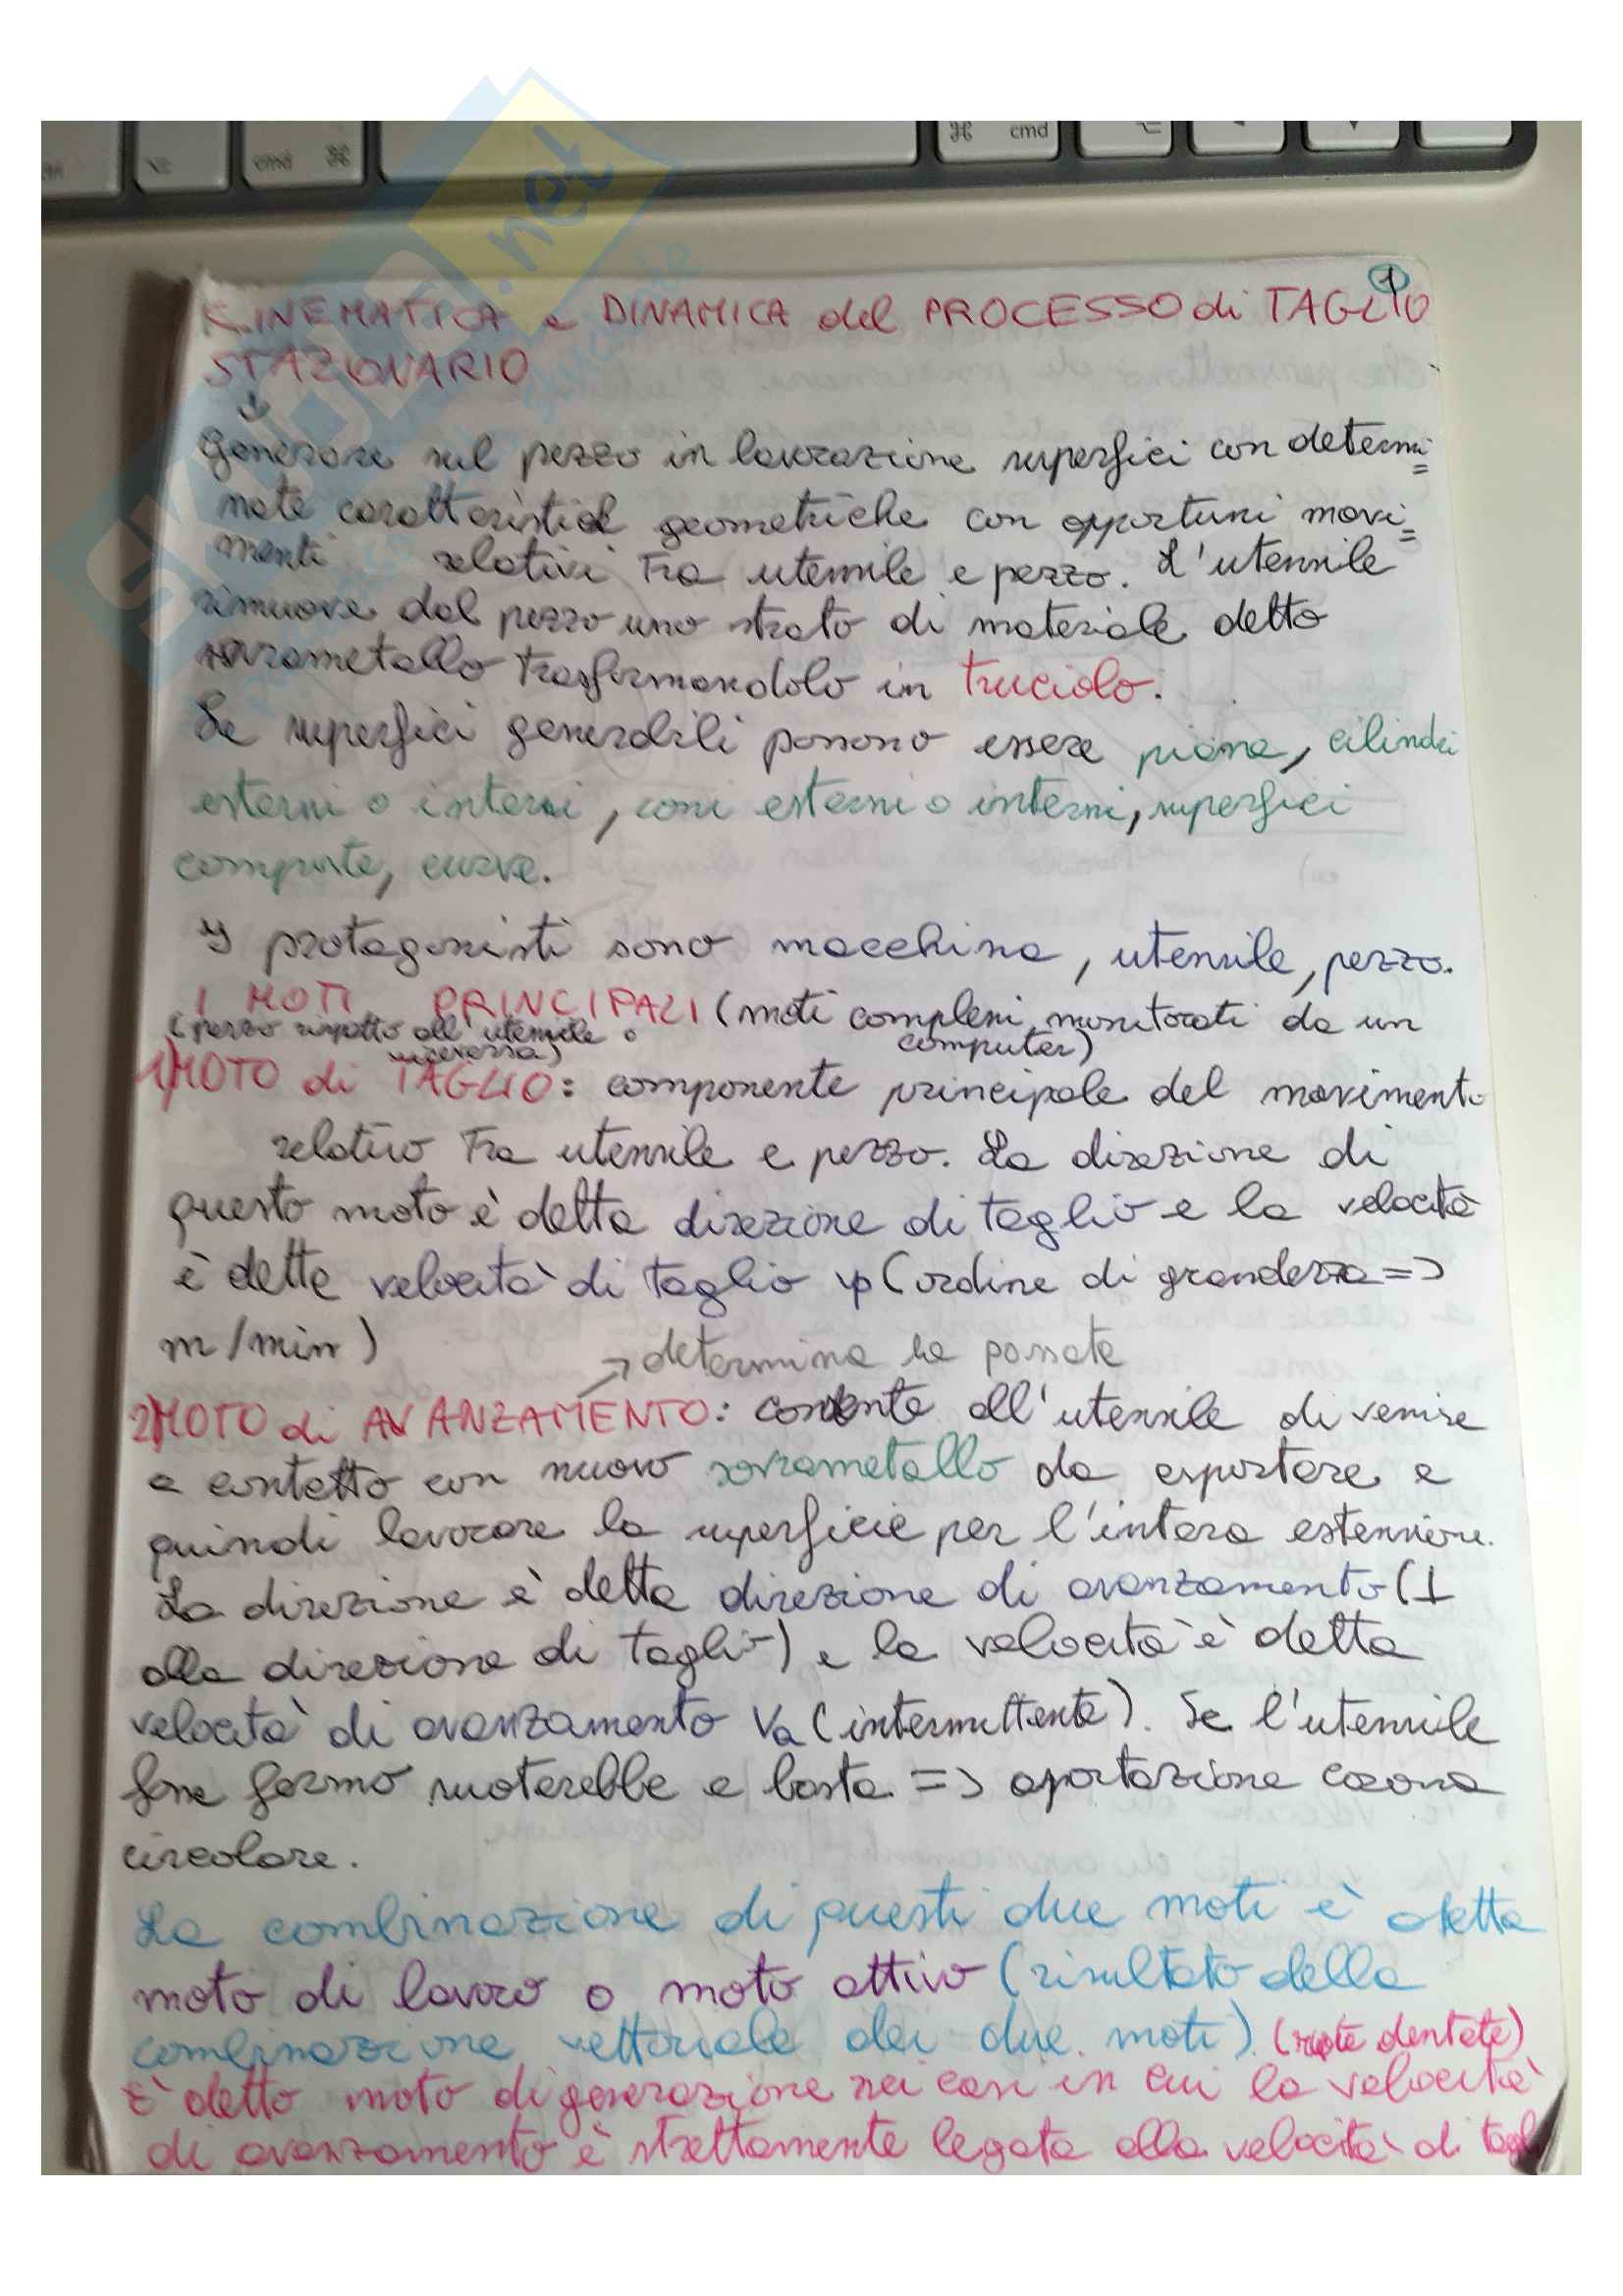 cmd ⌘
⌘ cmd
SKUOLA.net
1
CINEMATICA e DINAMICA del PROCESSO di TAGLIO
STAZIONARIO
Generare sul pezzo in lavorazione superfici con determi=
nate caratteristiche geometriche con opportuni movi=
menti relativi tra utensile e pezzo. L'utensile
rimuove dal pezzo uno strato di materiale detto
sovrametallo trasformandolo in truciolo.
Le superfici generabili possono essere piane, cilindri
esterni o interni, coni esterni o interni, superfici
composte, curve.
I protagonisti sono macchina, utensile, pezzo.
I MOTI PRINCIPALI (moti complessi monitorati da un
computer)
(pezzo rispetto all'utensile o
viceversa)
1)MOTO di TAGLIO: componente principale del movimento
relativo tra utensile e pezzo. La direzione di
questo moto è detta direzione di taglio e la velocità
è detta velocità di taglio (ordine di grandezza =>
m/min)
→ determina la passata
2)MOTO di AVANZAMENTO: consente all'utensile di venire
a contatto con nuovo sovrametallo da asportare e
quindi lavorare la superficie per l'intera estensione.
La direzione è detta direzione di avanzamento (⊥
alla direzione di taglio) e la velocità è detta
velocità di avanzamento Va (intermittente). Se l'utensile
fosse fermo ruoterebbe e basta => aportazione corona
circolare.
La combinazione di questi due moti è detta
moto di lavoro o moto attivo (risultato della
combinazione vettoriale dei due moti). (ruote dentate)
È detto moto di generazione nei casi in cui la velocità
di avanzamento è strettamente legata alla velocità di